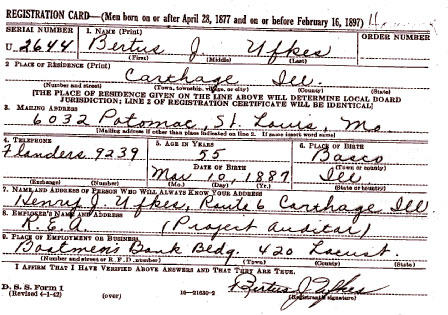 REGISTRATION CARD—(Men born on or after April 28, 1877 and on or before February 16, 1897)
SERIAL NUMBER 1. NAME (Print) ORDER NUMBER
U 2644 Bertus J. Ufkes
(First) (Middle) (Last)
2. PLACE OF RESIDENCE (Print)
Carthage Ill.
(Number and street) (Town, township, village, or city) (County) (State)
[THE PLACE OF RESIDENCE GIVEN ON THE LINE ABOVE WILL DETERMINE LOCAL BOARD
JURISDICTION; LINE 2 OF REGISTRATION CERTIFICATE WILL BE IDENTICAL]
3. MAILING ADDRESS
6032 Potomac, St. Louis, Mo
[Mailing address if other than place indicated on line 2. If same insert word same]
4. TELEPHONE 5. AGE IN YEARS 6. PLACE OF BIRTH
Flanders 9239 55 Basco
DATE OF BIRTH (Town or county)
Mar. 10, 1887 Ill
(Exchange) (Number) (Mo.) (Day) (Yr.) (State or country)
7. NAME AND ADDRESS OF PERSON WHO WILL ALWAYS KNOW YOUR ADDRESS
Henry J. Ufkes, Route 6 Carthage Ill.
8. EMPLOYER'S NAME AND ADDRESS
R.E.A. (Project Auditor)
9. PLACE OF EMPLOYMENT OR BUSINESS
Boatmen's Bank Bldg. 420 Locust.
(Number and street or R. F. D. number) (Town) (County) (State)
I AFFIRM THAT I HAVE VERIFIED ABOVE ANSWERS AND THAT THEY ARE TRUE.
D. S. S. Form 1 Bertus J. Ufkes
(Revised 4-1-42) (over) 16—21630-2 (Registrant's signature)